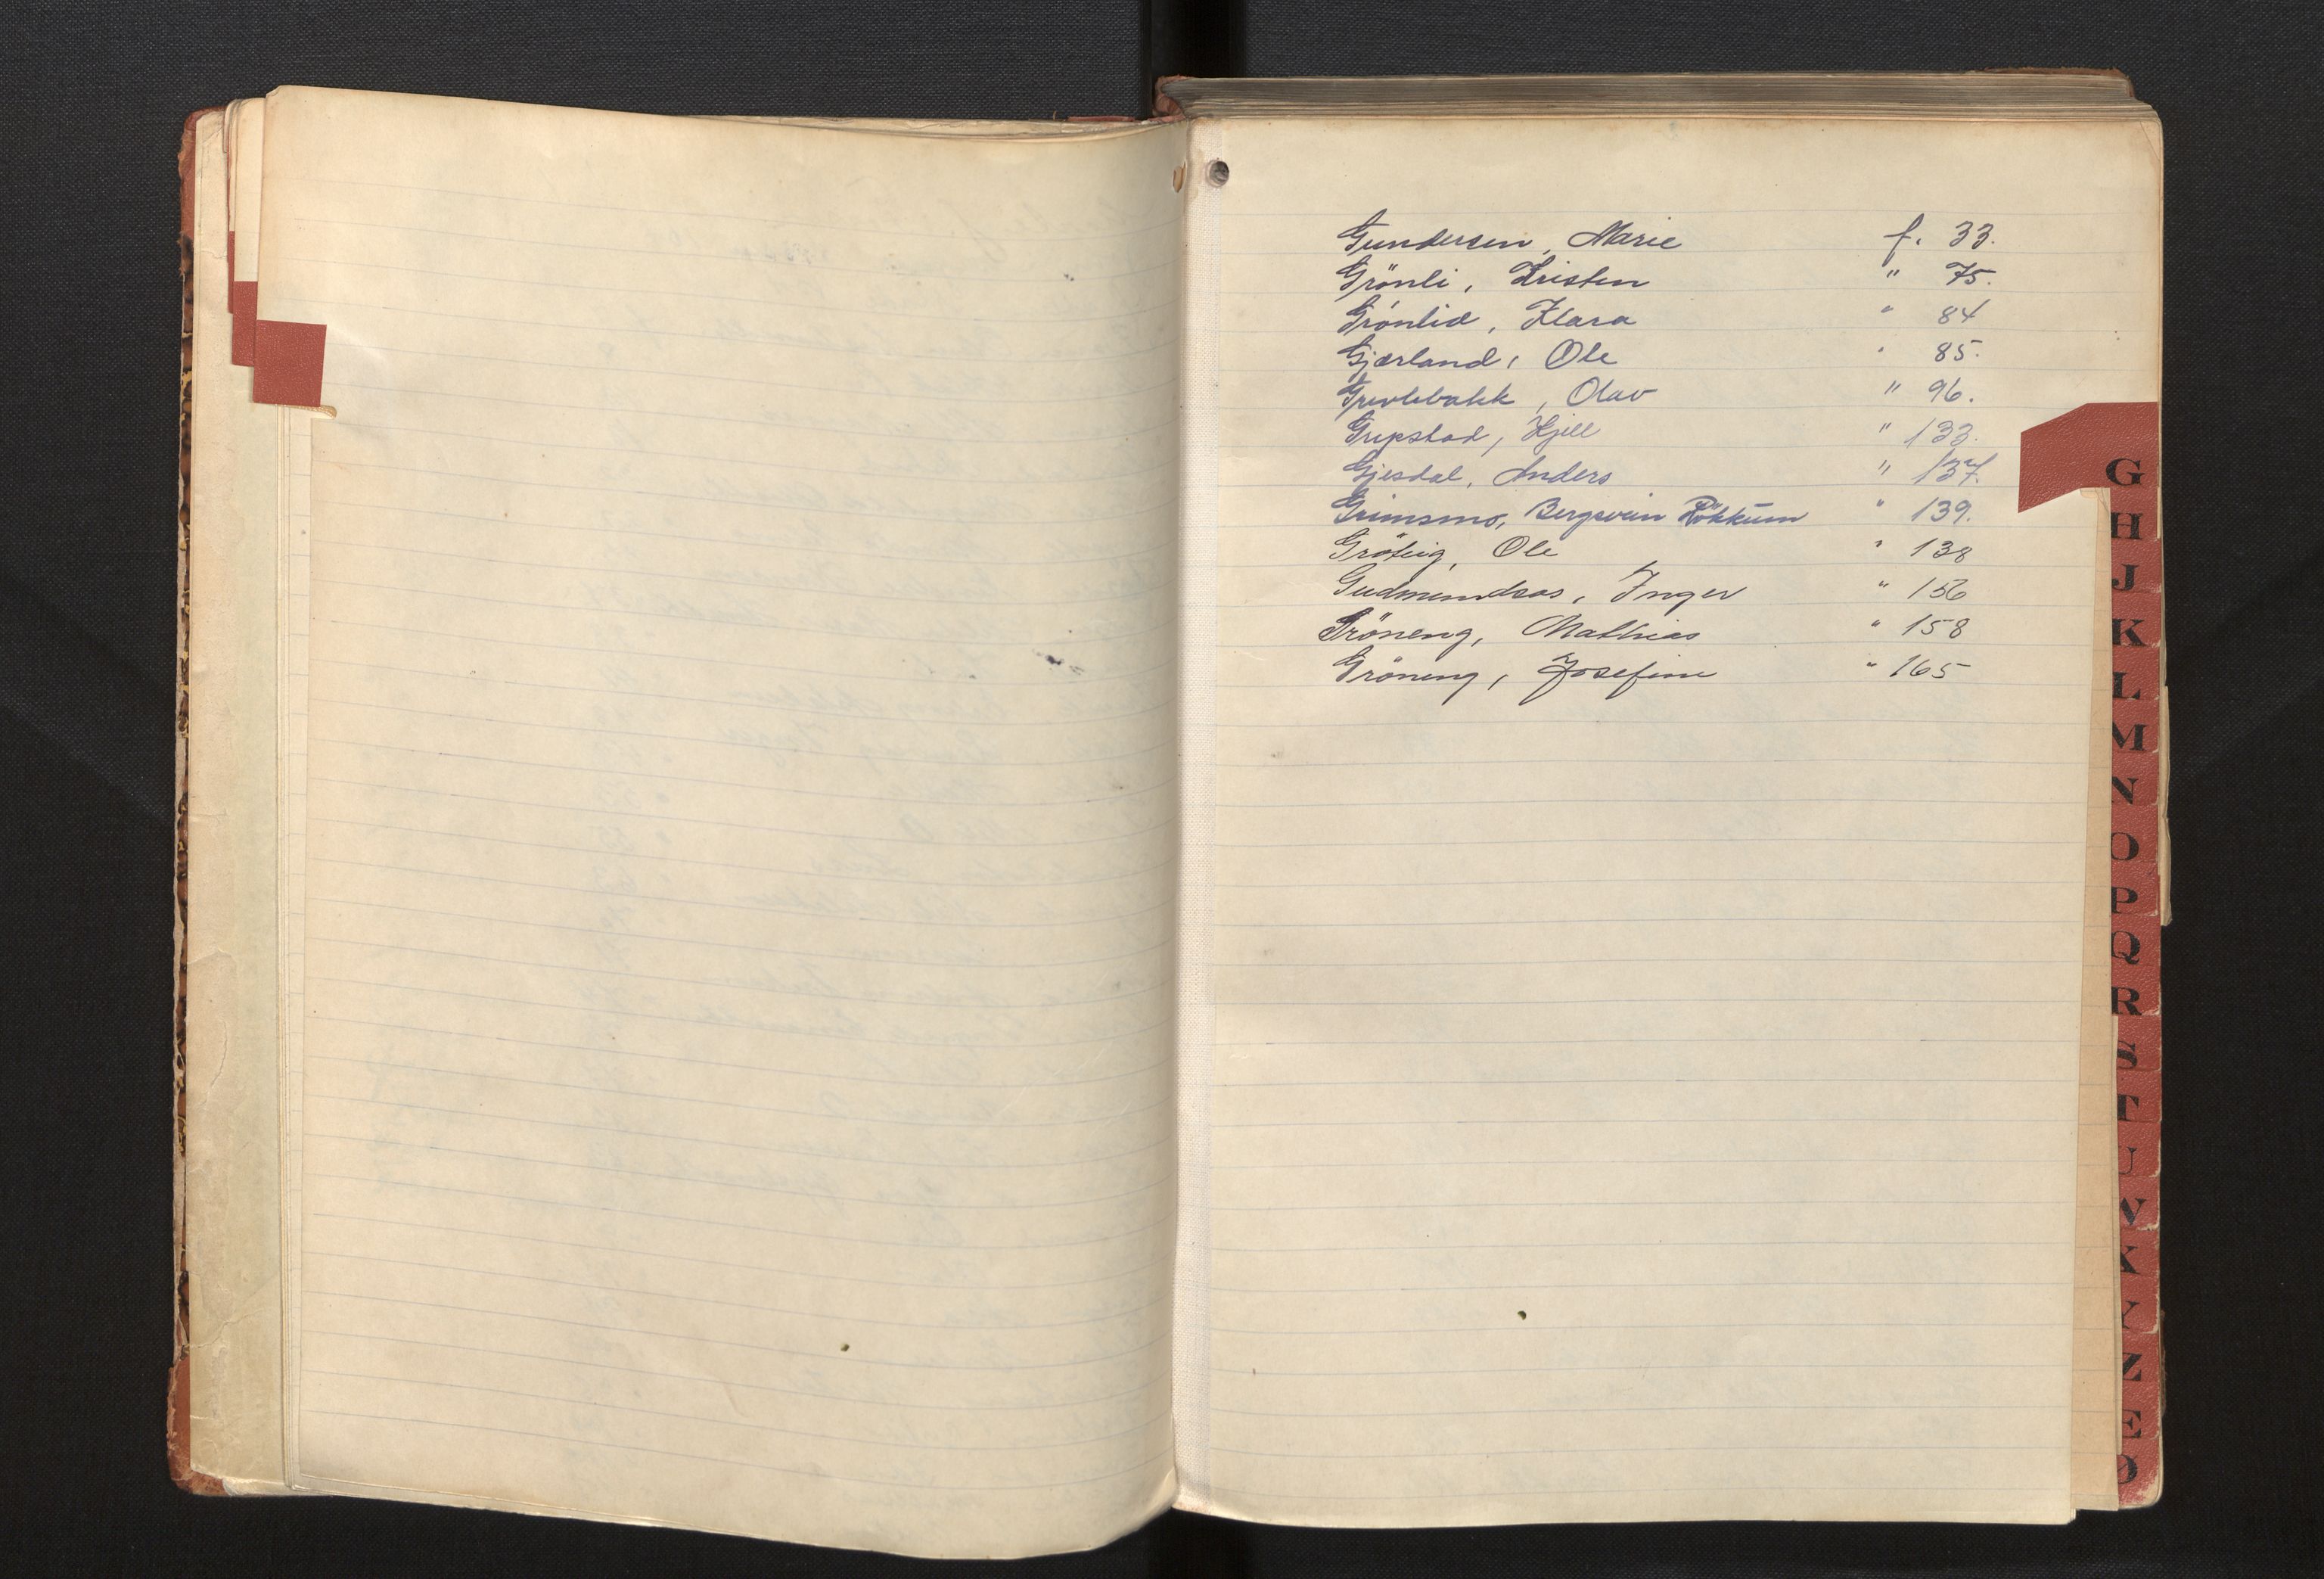 Gundersen, Marie f. 33.
Grönli, Kristen " 75.
Grönlid, Klara " 84
Gjærland, Ole " 85.
Grevlebakk, Olav " 96.
Grepstad, Kjell " 133.
Gjesdal, Anders " 137.
Grimsmo, Bergsvein Rökkum " 139.
Ole " 138
Gudmundsas, Inger " 156
Gröneng, Mathias " 158
Gröneng, Josefine " 165
G
H
J
K
L
M
N
O
P
Q
R
S
T
U
V
X
Y
Z
Æ
Ø